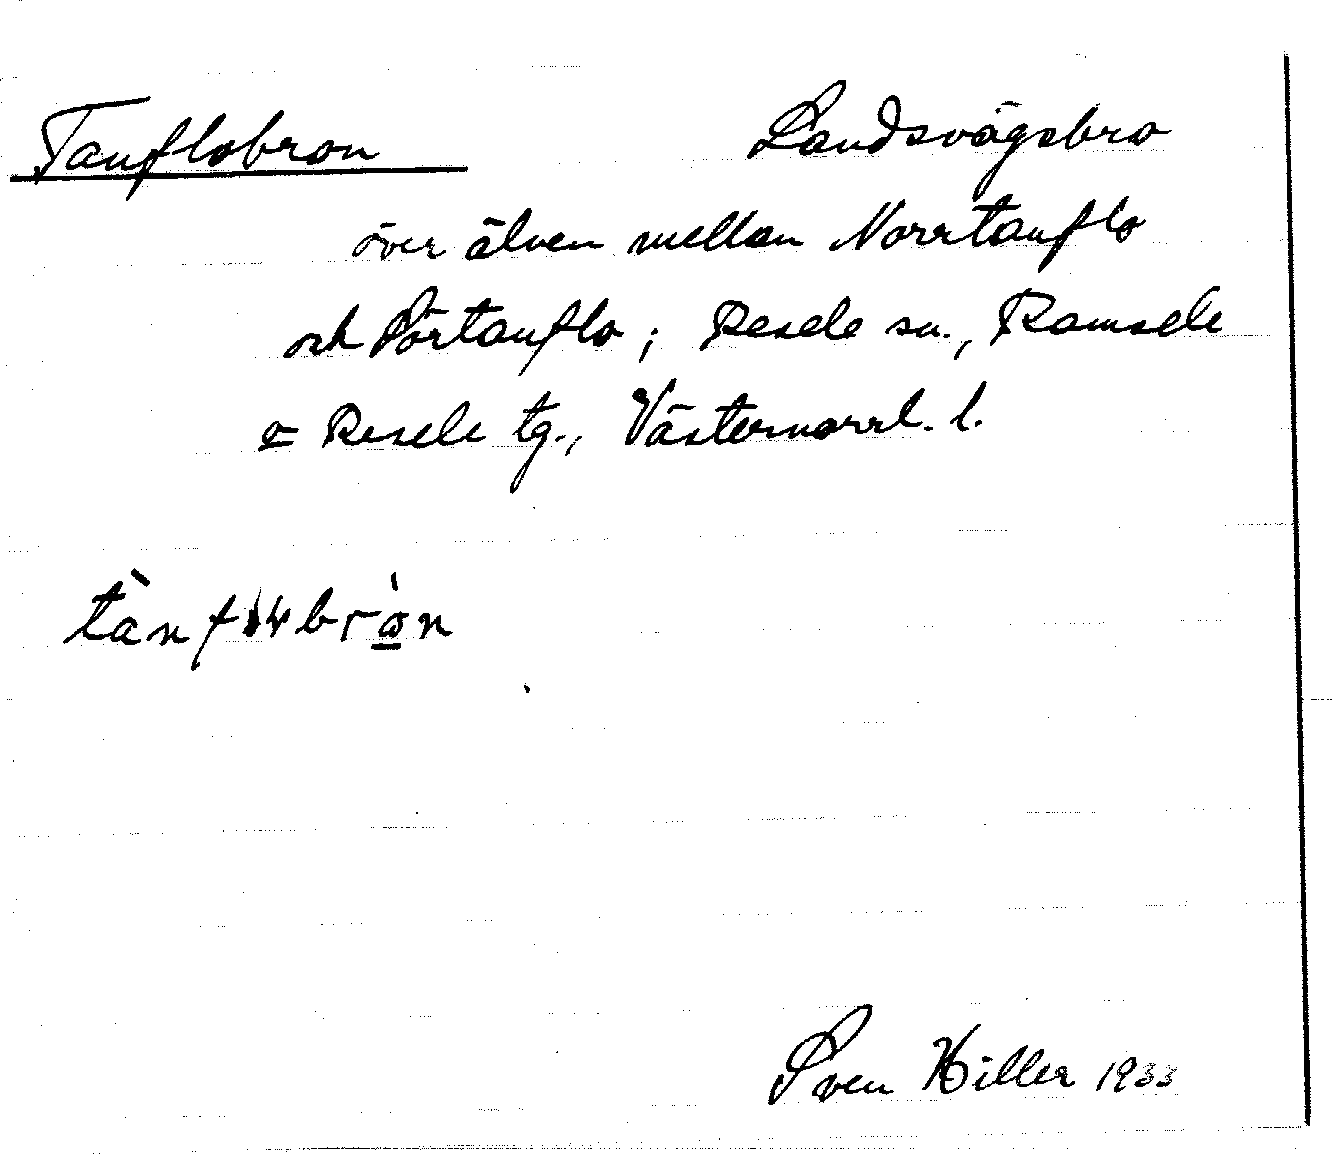 Tanflobron Landsvägsbro
över älven mellan Norrtanflo
och Sörtanflo; Resele sn., Ramsele
o Resele tg., Västernorrl. l.
Sven Hiller 1933